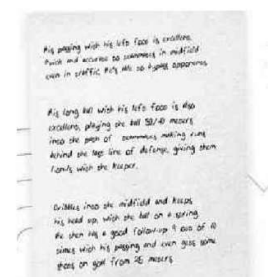 His passing with his left foot is excellent.
Quick and accurate to teammates in midfield
even in traffic. He's able to bypass opponents
His long ball with his left foot is also
excellent, playing the ball 30/40 meters
into the path of teammates making runs
behind the last line of defense, giving them
1 on 1s with the keeper.
Dribbles into the midfield and keeps
his head up, with the ball on a string
He then has a good follow-up 9 out of 10
times with his passing and even gets some
shots on goal from 25 meters